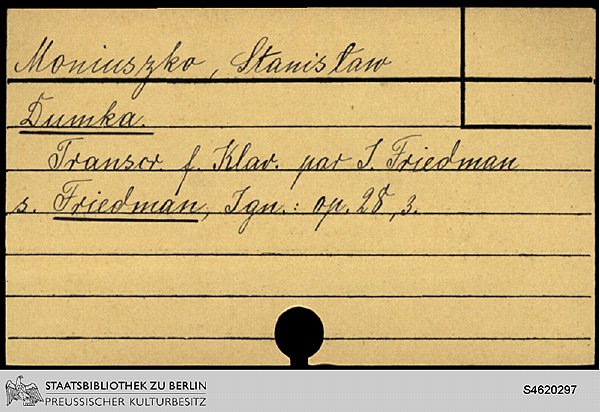 Moniuszko, Stanisław
Dumka.
Transcr. f. Klav. par I. Friedman
s. Friedman, Ign.: op. 28,3.
STAATSBIBLIOTHEK ZU BERLIN
PREUSSISCHER KULTURBESITZ
S4620297